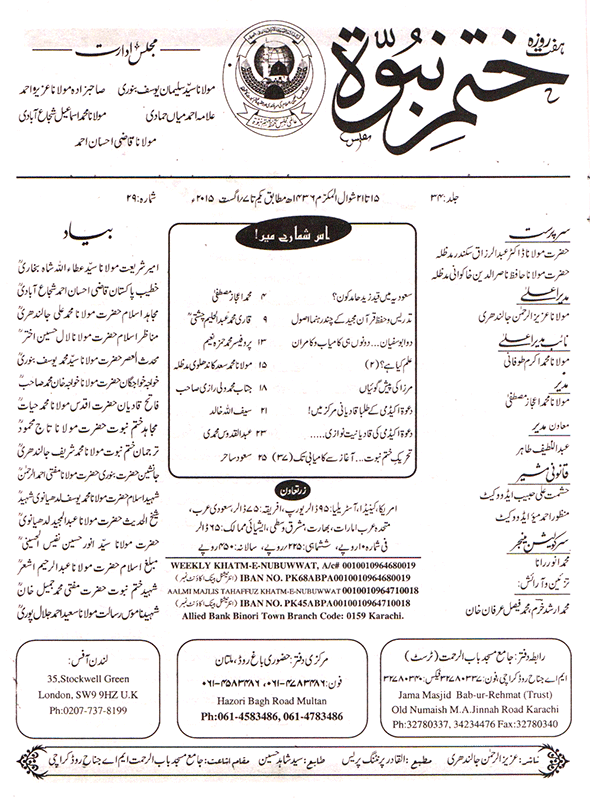 ہفت روزہ
ختم نبوّۃ
مجلس ادارت
مولانا سید سلیمان یوسف بنوری صاحبزادہ مولانا عزیز احمد
علامہ احمد میاں حمادی مولانا محمد اسماعیل شجاع آبادی
مولانا قاضی احسان احمد
جلد: ۳۴
۱۵ تا ۲۱ شوال المکرم ۱۴۳۶ھ مطابق یکم تا ۷ اگست ۲۰۱۵ء
شمارہ: ۲۹
سرپرست
حضرت مولانا ڈاکٹر عبدالرزاق سکندر مدظلہ
حضرت مولانا حافظ ناصر الدین خاکوانی مدظلہ
مدیر اعلیٰ
مولانا عزیز الرحمٰن جالندھری
نائب مدیر اعلیٰ
مولانا محمد اکرم طوفانی
مدیر
مولانا محمد اعجاز مصطفیٰ
معاون مدیر
عبداللطیف طاہر
قانونی مشیر
حشمت علی حبیب ایڈووکیٹ
منظور احمد میؤ ایڈووکیٹ
سرکولیشن منیجر
محمد انور رانا
تزئین و آرائش:
محمد ارشد خرم، محمد فیصل عرفان خان
اس شمارے میں!
سعودیہ میں قید زید حامد کون؟ ۴ محمد اعجاز مصطفیٰ
تدریس و حفظ قرآن مجید کے چند رہنما اصول ۹ قاری محمد عبدالحلیم چشتیؒ
دو ابوسفیان... دونوں ہی کامیاب و کامران ۱۳ پروفیسر محمد حمزہ نعیم
علم کیا ہے؟ (۲) ۱۵ مولانا محمد سعد کاندھلوی مدظلہ
مرزا کی پیش گوئیاں ۱۸ جناب محمد ولی رازی صاحب
دعوۃ اکیڈمی کے طلبا قادیانی مرکز میں! ۲۱ سیف اللہ خالد
دعوۃ اکیڈمی کی قادیانیت نوازی...... ۲۳ عبدالقدوس محمدی
تحریک ختم نبوت... آغاز سے کامیابی تک (۳۷) ۲۵ سعود ساحر
زرتعاون
امریکا، کینیڈا، آسٹریلیا: ۹۵ ڈالر یورپ، افریقہ: ۷۵ ڈالر، سعودی عرب،
متحدہ عرب امارات، بھارت، مشرق وسطیٰ، ایشیائی ممالک: ۶۵ ڈالر
فی شمارہ ۱۰ روپے، ششماہی: ۲۲۵ روپے، سالانہ: ۴۵۰ روپے
WEEKLY KHATM-E-NUBUWWAT, A/c# 0010010964680019
IBAN NO. PK68ABPA0010010964680019 (انٹرنیشنل بینک اکاؤنٹ نمبر)
AALMI MAJLIS TAHAFFUZ KHATM-E-NUBUWWAT 0010010964710018
IBAN NO. PK45ABPA0010010964710018 (انٹرنیشنل بینک اکاؤنٹ نمبر)
Allied Bank Binori Town Branch Code: 0159 Karachi.
بیاد
امیر شریعت مولانا سید عطاء اللہ شاہ بخاریؒ
خطیب پاکستان قاضی احسان احمد شجاع آبادیؒ
مجاہد اسلام حضرت مولانا محمد علی جالندھریؒ
مناظر اسلام حضرت مولانا لال حسین اخترؒ
محدث العصر حضرت مولانا سید محمد یوسف بنوریؒ
خواجہ خواجگان حضرت مولانا خواجہ خان محمد صاحبؒ
فاتح قادیان حضرت اقدس مولانا محمد حیاتؒ
مجاہد ختم نبوت حضرت مولانا تاج محمودؒ
ترجمان ختم نبوت حضرت مولانا محمد شریف جالندھریؒ
جانشین حضرت بنوری حضرت مولانا مفتی احمد الرحمٰنؒ
شہید اسلام حضرت مولانا محمد یوسف لدھیانوی شہیدؒ
شیخ الحدیث حضرت مولانا عبدالمجید لدھیانویؒ
حضرت مولانا سید انور حسین نفیس الحسینیؒ
مبلغ اسلام حضرت مولانا عبدالرحیم اشعرؒ
شہید ختم نبوت حضرت مفتی محمد جمیل خانؒ
شہید ناموس رسالت مولانا سعید احمد جلال پوریؒ
رابطہ دفتر: جامع مسجد باب الرحمت (ٹرسٹ)
ایم اے جناح روڈ کراچی، فون: ۳۲۷۸۰۳۳۷ فیکس: ۳۲۷۸۰۳۴۰
Jama Masjid Bab-ur-Rehmat (Trust)
Old Numaish M.A.Jinnah Road Karachi
Ph:32780337, 34234476 Fax:32780340
مرکزی دفتر: حضوری باغ روڈ، ملتان
فون: ۰۶۱-۴۷۸۳۴۸۶، ۰۶۱-۴۵۸۳۴۸۶
Hazori Bagh Road Multan
Ph:061-4583486, 061-4783486
لندن آفس:
35,Stockwell Green
London, SW9 9HZ U.K
Ph:0207-737-8199
ناشر: عزیز الرحمٰن جالندھری مطبع: القادر پرنٹنگ پریس طابع: سید شاہد حسین مقام اشاعت: جامع مسجد باب الرحمت ایم اے جناح روڈ کراچی